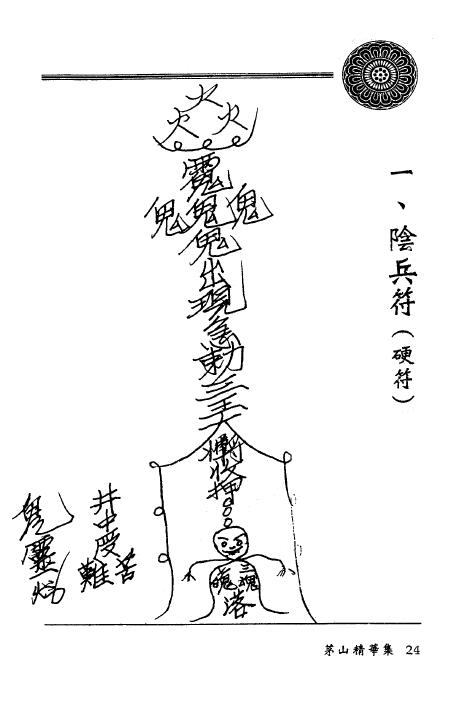 一、陰兵符(硬符)
火
火 火
鬼 鬼 鬼
鬼
出
現
急
勅
三
天
將
收
押
三魂
落
井中受難苦
靈
茅山精華集 24